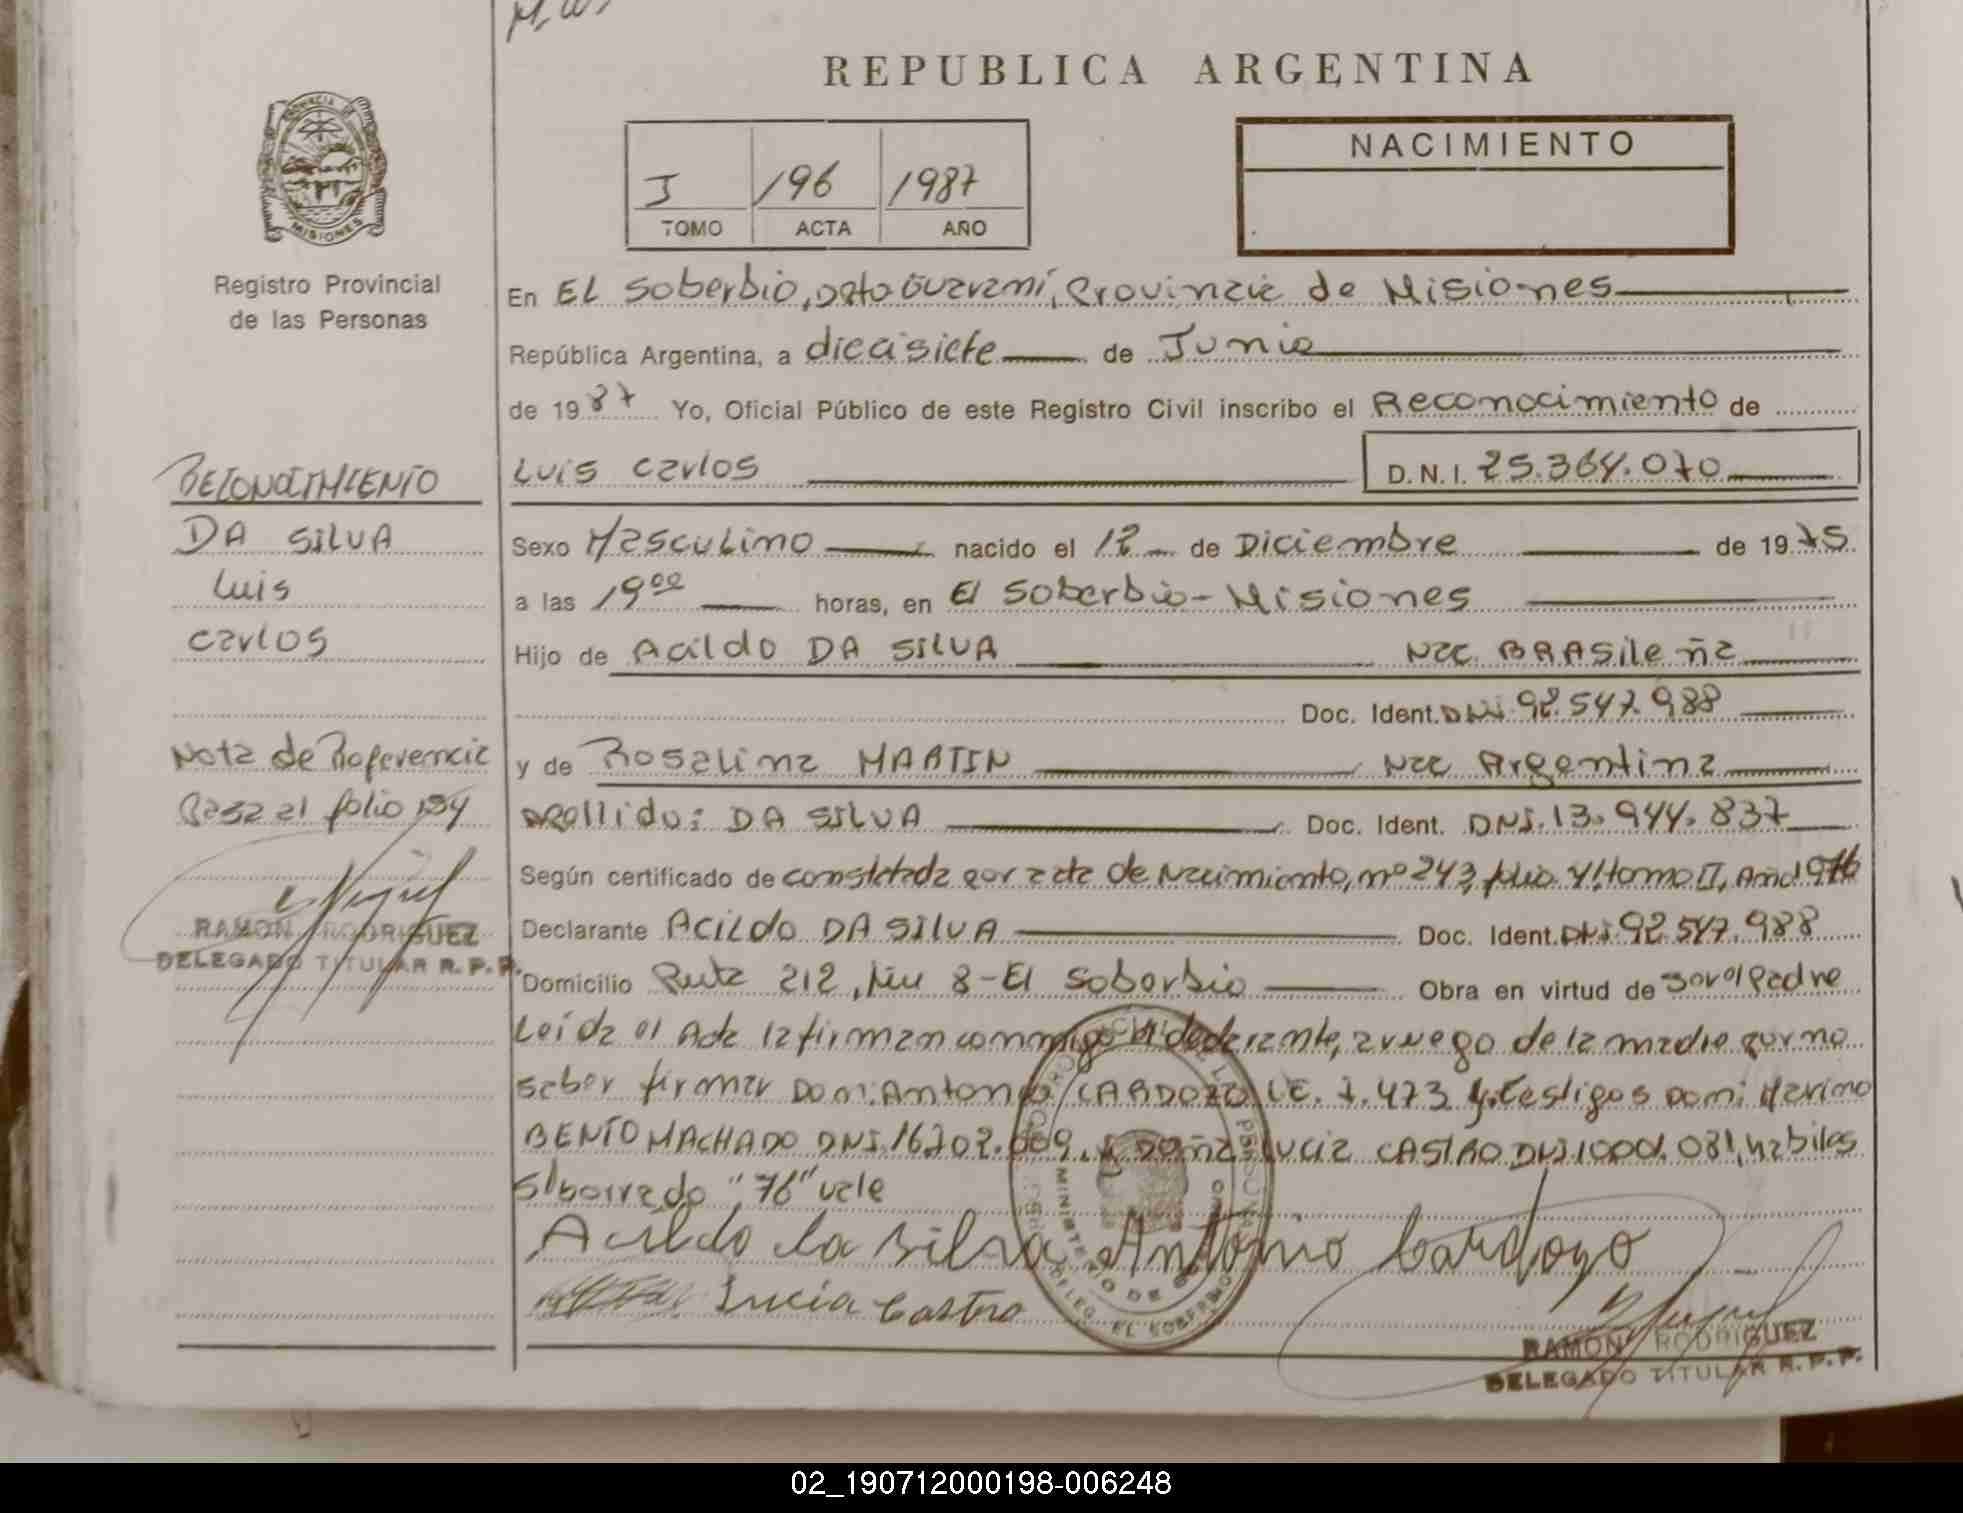 REPUBLICA ARGENTINA
PROVINCIA DE MISIONES
Registro Provincial
de las Personas
I 196 1987
TOMO ACTA AÑO
NACIMIENTO
En EL Soberbio, Dpto Guaraní, Provincia de Misiones
República Argentina, a diecisiete de Junio
de 1987 Yo, Oficial Público de este Registro Civil inscribo el Reconocimiento de
Luis Carlos D.N.I. 25.364.070
Sexo Masculino nacido el 12 de Diciembre de 1975
a las 19 00 horas, en El Soberbio - Misiones
Hijo de Acildo DA SILVA Nac. BRASileña
Doc. Ident. DNI 92.547.988
y de Rosalina MARTIN Nac Argentina
Apellido: DA SILVA Doc. Ident. DNI. 13.944.837
Según certificado de constatada por acta de Nacimiento, nº 243, folio tomo II, Año 1976
Declarante ACILDO DA SILVA Doc. Ident. DNI 92.547.988
Domicilio Ruta 212, km 8 - El Soberbio Obra en virtud de ser el Padre
Leída el Acta la firman conmigo el declarante, a ruego de la madre por no
saber firmar Don: Antonio CARDOZO LE. 7.473 y testigos Don: Marino
BENTO MACHADO DNI. 16.202.009 y Doña Lucia CASTRO DNI habiles
S/borrado "76" vale
Acildo da Silva Antonio Cardozo
Lucia Castro
RAMON RODRIGUEZ
DELEGADO TITULAR R.P.P.
MINISTERIO DE GOBIERNO
DELEG. EL SOBERBIO
RECONOCIMIENTO
DA SILVA
Luis
Carlos
Nota de Referencia
Pasa al folio 194
RAMON RODRIGUEZ
DELEGADO TITULAR R.P.P.
02_190712000198-006248